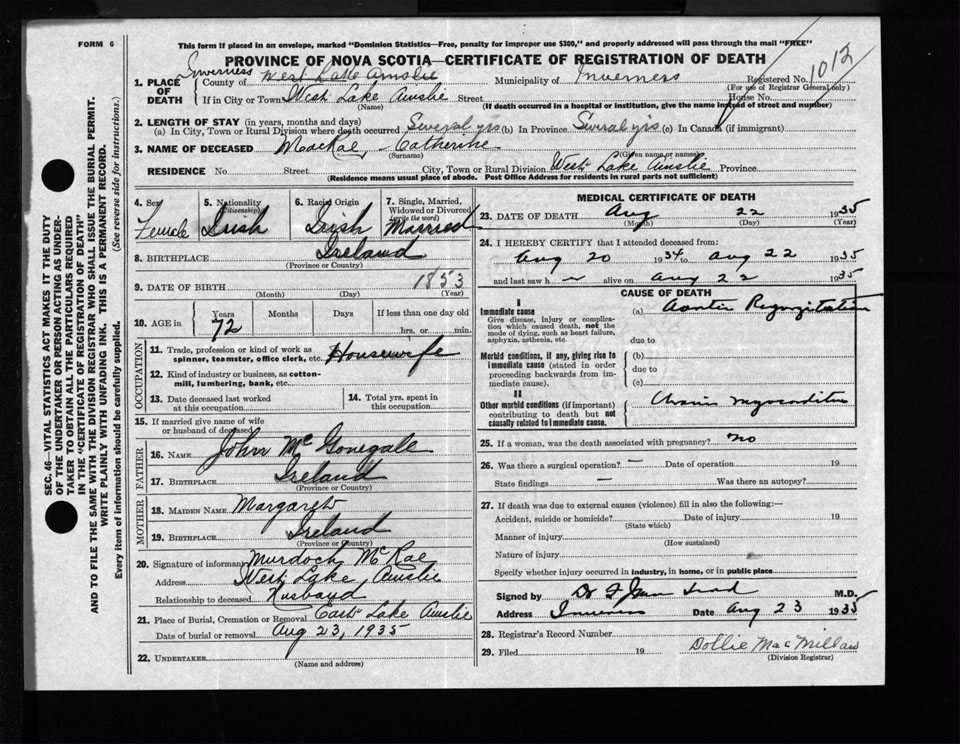 FORM 6
This form if placed in an envelope, marked "Dominion Statistics—Free, penalty for improper use $300," and properly addressed will pass through the mail "FREE"
PROVINCE OF NOVA SCOTIA—CERTIFICATE OF REGISTRATION OF DEATH
1. PLACE OF DEATH
Inverness
County of West Lake Ainslie Municipality of Inverness Registered No. 1012
(For use of Registrar General only)
If in City or Town West Lake Ainslie Street House No.
(Name) (If death occurred in a hospital or institution, give the name instead of street and number)
2. LENGTH OF STAY (in years, months and days)
(a) In City, Town or Rural Division where death occurred Several yrs (b) In Province Several yrs (c) In Canada (if immigrant)
3. NAME OF DECEASED MacRae, - Catherine
(Surname) (Given name or names)
RESIDENCE No. Street City, Town or Rural Division West Lake Ainslie Province
(Residence means usual place of abode. Post Office Address for residents in rural parts not sufficient)
4. Sex
Female
5. Nationality (Citizenship)
Irish
6. Racial Origin
Irish
7. Single, Married, Widowed or Divorced (write the word)
Married
8. BIRTHPLACE Ireland
(Province or Country)
9. DATE OF BIRTH 1853
(Month) (Day) (Year)
10. AGE in
Years Months Days If less than one day old
72 hrs. or min.
OCCUPATION
11. Trade, profession or kind of work as
spinner, teamster, office clerk, etc. Housewife
12. Kind of industry or business, as cotton-
mill, lumbering, bank, etc.
23. Date deceased last worked
at this occupation
14. Total yrs. spent in
this occupation
15. If married give name of wife
or husband of deceased
FATHER
16. NAME John Mc Gonegale
17. BIRTHPLACE Ireland
(Province or Country)
MOTHER
18. MAIDEN NAME Margaret
19. BIRTHPLACE Ireland
(Province or Country)
20. Signature of informant Murdoch McRae
Address West Lake Ainslie
Relationship to deceased Husband
21. Place of Burial, Cremation or Removal East Lake Ainslie
Date of burial or removal Aug 23, 1935
22. UNDERTAKER
(Name and address)
MEDICAL CERTIFICATE OF DEATH
23. DATE OF DEATH Aug 22 1935
(Month) (Day) (Year)
24. I HEREBY CERTIFY that I attended deceased from:
Aug 20 1934 to Aug 22 1935
and last saw h alive on Aug 22 1935
CAUSE OF DEATH
I
Immediate cause
Give disease, injury or complica-
tion which caused death, not the
mode of dying, such as heart failure,
asphyxia, asthenia, etc.
(a) Aortic Regurgitation
due to
Morbid conditions, if any, giving rise to
immediate cause (stated in order
proceeding backwards from im-
mediate cause).
(b)
due to
(c)
II
Other morbid conditions (if important)
contributing to death but not
causally related to immediate cause.
Chronic myocarditis
25. If a woman, was the death associated with pregnancy? no
26. Was there a surgical operation? — Date of operation 19
State findings — Was there an autopsy?
27. If death was due to external causes (violence) fill in also the following:
Accident, suicide or homicide? Date of injury 19
(State which)
Manner of injury
(How sustained)
Nature of injury
Specify whether injury occurred in industry, in home, or in public place
Signed by Dr M.D.
Address Inverness Date Aug 23 1935
28. Registrar's Record Number
29. Filed 19 Dollie MacMillan
(Division Registrar)
SEC. 46—VITAL STATISTICS ACT MAKES IT THE DUTY
OF THE UNDERTAKER OR PERSON ACTING AS UNDER-
TAKER TO OBTAIN ALL THE PARTICULARS REQUIRED
IN THE "CERTIFICATE OF REGISTRATION OF DEATH"
AND TO FILE THE SAME WITH THE DIVISION REGISTRAR WHO SHALL ISSUE THE BURIAL PERMIT.
WRITE PLAINLY WITH UNFADING INK. THIS IS A PERMANENT RECORD.
Every item of information should be carefully supplied. (See reverse side for instructions.)